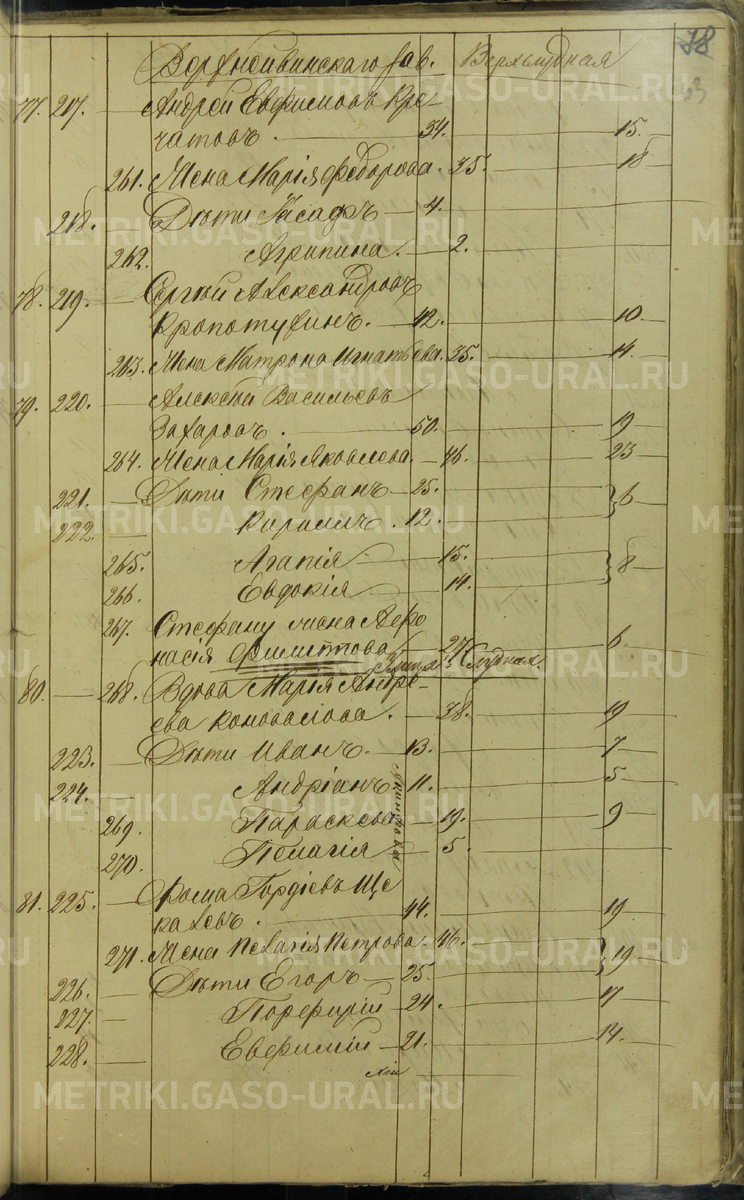 78
Верхнейвинскаго зав. Верхслудная
77. 217. — Андрей Евфимовъ Кре-
чатовъ. — 34. — 15.
261. Жена Марія Федорова. 35. — 18
218. — Дѣти Іасафъ — 4.
262. Агрипина. — 2.
78. 219. — Сергѣй Александровъ
Кропотухинъ. — 42. — 10.
263. Жена Матрона Игнатьева. 35. — 14.
79. 220. — Алексѣй Васильевъ
Захаровъ. — 50. — 19
264. Жена Марія Яковлева. — 46. — 23
221. — Дѣти Стефанъ — 25. — 6
222. Кириллъ. 12.
265. Агапія — 15. — 8
266. Евдокія — 14.
267. Стефану жена Афо
насія Филиппова — 27. — 6
Слудная.
80. — 268. Вдова Марія Андре-
ева Коновалова. — 38. — 19
223. — Дѣти Иванъ. — 13. — 7
224. — Андріанъ 11. — 5
269. Параскева — 19. — 9
270. Пелагія — 5.
81. 225. — Фома Гордіевъ Ще
калевъ. — 44. — 19
271. Жена Пелагія Петрова. 46. — 19
226. — Дѣти Егоръ — 25.
227. — Порфирій — 24. — 17
228. — Евфимій — 21. — 14.
METRIKI.GASO-URAL.RU